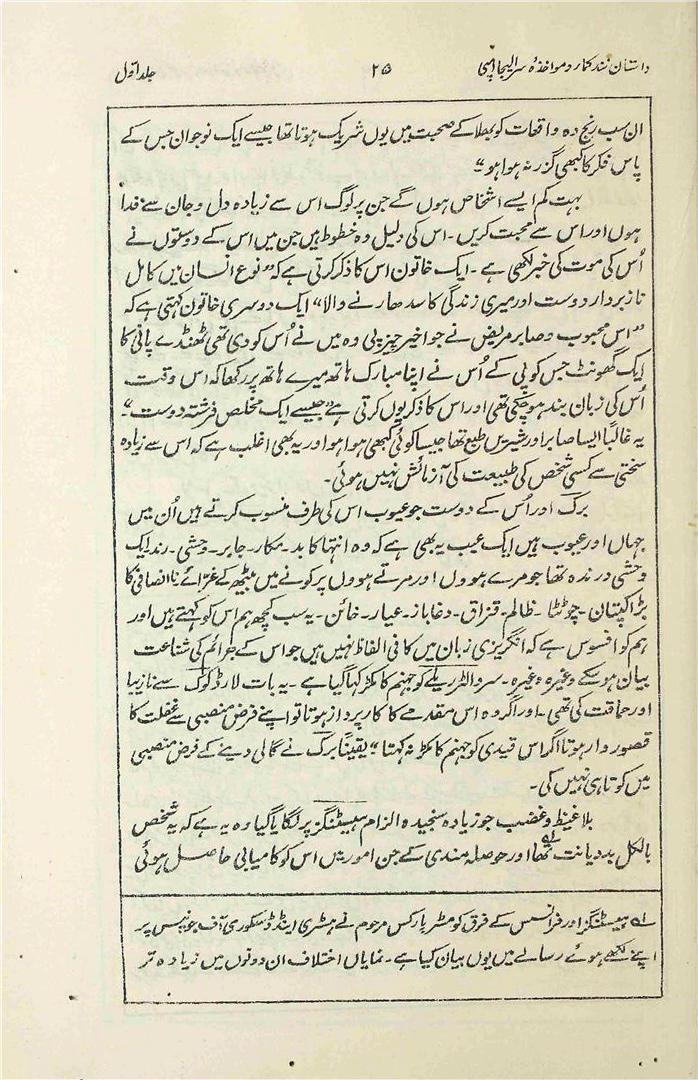 داستان نند کمار و مواخذہ سر الیجا امپی ۲۵ جلد اوّل
ان سب رنج دہ واقعات کو بھلا کے صحبت میں یوں شریک ہوتا تھا جیسے ایک نوجوان جس کے
پاس فکر کا کبھی گزر نہ ہوا ہو“
بہت کم ایسے اشخاص ہوں گے جن پر لوگ اس سے زیادہ دل و جان سے فدا
ہوں اور اس سے محبت کریں۔ اس کی دلیل وہ خطوط ہیں جن میں اس کے دوستوں نے
اُس کی موت کی خبر لکھی ہے۔ ایک خاتون اس کا ذکر کرتی ہے کہ ”نوع انسان میں کامل
نازبردار دوست اور میری زندگی کا سدھارنے والا“ ایک دوسری خاتون کہتی ہے کہ
”اس محبوب و صابر مریض نے جو اخیر چیز پی وہ میں نے اُس کو دی تھی ٹھنڈے پانی کا
ایک گھونٹ جس کو پی کے اُس نے اپنا مبارک ہاتھ میرے ہاتھ پر رکھا کہ اس وقت
اُس کی زبان بند ہو چکی تھی اور اس کا ذکر یوں کرتی ہے ”جیسے ایک مخلص فرشتہ دوست“۔
یہ غالباً ایسا صابر اور شیریں طبع تھا جیسا کوئی کبھی ہوا ہو اور یہ بھی اغلب ہے کہ اس سے زیادہ
سختی سے کسی شخص کی طبیعت کی آزمائش نہیں ہوئی۔
برک اور اُس کے دوست جو عیوب اس کی طرف منسوب کرتے ہیں اُن میں
جہاں اور عیوب ہیں ایک عیب یہ بھی ہے کہ وہ انتہا کا بد۔ مکار۔ جابر۔ وحشی۔ رند ایک
وحشی درندہ تھا جو مرے ہووں اور مرتے ہووں پر کونے میں بیٹھ کے غرّائے ناانصافی کا
بڑا کپتان۔ چوٹٹا۔ ظالم۔ قزاق۔ دغاباز۔ عیار۔ خائن۔ یہ سب کچھ ہم اس کو کہتے ہیں اور
ہم کو افسوس ہے کہ انگریزی زبان میں کافی الفاظ نہیں ہیں جو اس کے جرائم کی شناعت
بیان ہو سکے وغیرہ وغیرہ۔ سر والٹر ریلے کو جہنم کا مکڑ کہا گیا ہے۔ یہ بات لارڈ کوک سے نازیبا
اور حماقت کی تھی۔ اور اگر وہ اس مقدمے کا کار پرداز ہوتا تو اپنے فرض منصبی سے غفلت کا
قصور وار ہوتا اگر اس قیدی کو جہنم کا مکڑ نہ کہتا“ یقیناً برک نے گالی دینے کے فرض منصبی
میں کوتاہی نہیں کی۔
بلاغیظ و غضب جو زیادہ سنجیدہ الزام ہیسٹنگز پر لگایا گیا وہ یہ ہے کہ یہ شخص
بالکل بددیانت تھا اور حوصلہ مندی کے جن امور میں اس کو کامیابی حاصل ہوئی
لہ ہیسٹنگز اور فرانسس کے فرق کو مسٹر پارکس مرحوم نے ہسٹری اینڈ ڈسکوری آف جونیس پر۔
اپنے لکھے ہوئے رسالے میں یوں بیان کیا ہے۔ نمایاں اختلاف ان دونوں میں زیادہ تر